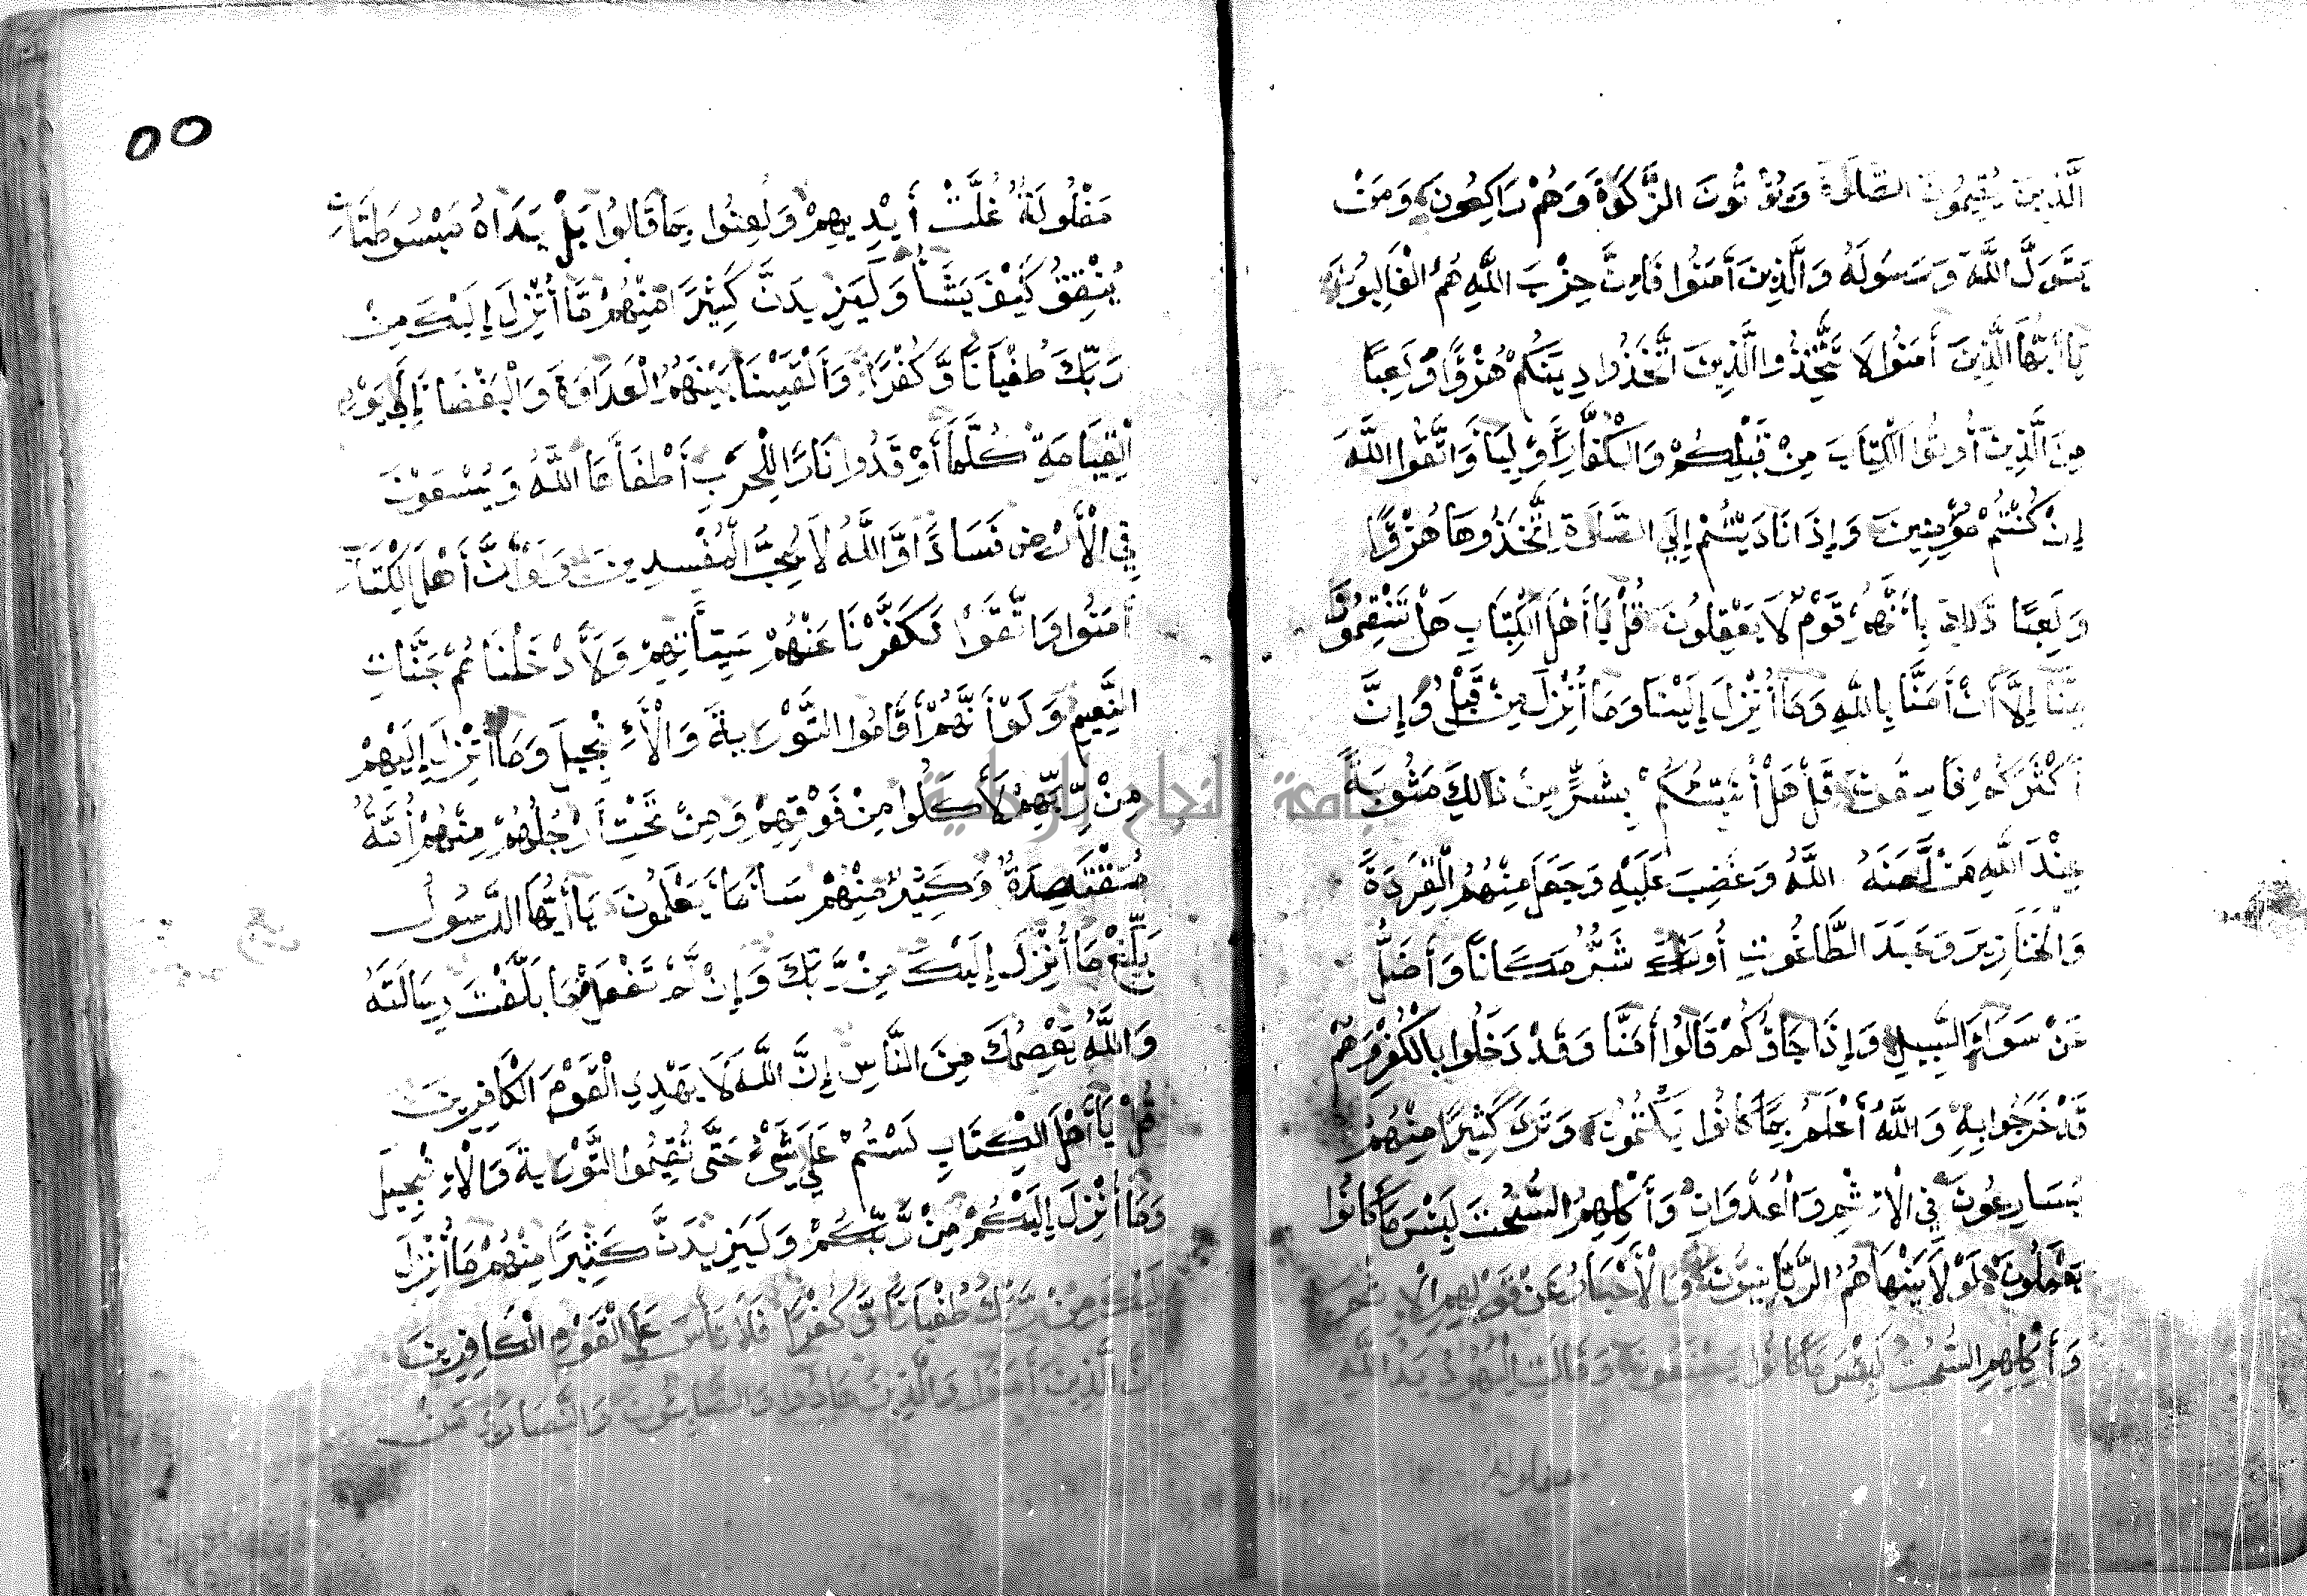 الَّذِينَ يُقِيمُونَ الصَّلَوةَ وَيُؤْتُونَ الزَّكَوةَ وَهُمْ رَاكِعُونَ وَمَنْ
يَتَوَلَّ اللَّهَ وَرَسُولَهُ وَالَّذِينَ أَمَنُوا فَإِنَّ حِزْبَ اللَّهِ هُمُ الْغَالِبُونَ
يَا أَيُّهَا الَّذِينَ أَمَنُوا لَا تَتَّخِذُوا الَّذِينَ اتَّخَذُوا دِينَكُمْ هُزُوًا وَلَعِبًا
مِنَ الَّذِينَ أُوتُوا الْكِتَابَ مِنْ قَبْلِكُمْ وَالْكُفَّارَ أَوْلِيَاَ وَاتَّقُوا اللَّهَ
إِنْ كُنْتُمْ مُؤْمِنِينَ وَإِذَا نَادَيْتُمْ إِلَى الصَّلَوةِ اتَّخَذُوهَا هُزُوًا
وَلَعِبًا ذَلِكَ بِأَنَّهُمْ قَوْمٌ لَا يَعْقِلُونَ قُلْ يَا أَهْلَ الْكِتَابِ هَلْ تَنْقِمُونَ
مِنَّا إِلَّا أَنْ أَمَنَّا بِاللَّهِ وَمَا أُنْزِلَ إِلَيْنَا وَمَا أُنْزِلَ مِنْ قَبْلُ وَإِنَّ
أَكْثَرَكُمْ فَاسِقُونَ قُلْ هَلْ أُنَبِّئُكُمْ بِشَرٍّ مِنْ ذَالِكَ مَثُوبَةً
عِنْدَ اللَّهِ مَنْ لَّعَنَهُ اللَّهُ وَغَضِبَ عَلَيْهِ وَجَعَلَ مِنْهُمُ الْقِرَدَةَ
وَالْخَنَازِيرَ وَعَبَدَ الطَّاغُوتِ أُولَئِكَ شَرٌّ مَكَانًا وَأَضَلُّ
عَنْ سَوَاءِ السَّبِيلِ وَإِذَا جَاؤُكُمْ قَالُوا أَمَنَّا وَقَدْ دَخَلُوا بِالْكُفْرِ وَهُمْ
قَدْ خَرَجُوا بِهِ وَاللَّهُ أَعْلَمُ بِمَا كَانُوا يَكْتُمُونَ وَتَرَى كَثِيرًا مِنْهُمْ
يُسَارِعُونَ فِي الْإِثْمِ وَالْعُدْوَانِ وَأَكْلِهِمُ السُّحْتَ لَبِئْسَ مَا كَانُوا
يَعْمَلُونَ لَوْلَا يَنْهَاهُمُ الرَّبَّانِيُّونَ وَالْأَحْبَارُ عَنْ قَوْلِهِمُ الْإِثْمَ
وَأَكْلِهِمِ السُّحْتَ لَبِئْسَ مَا كَانُوا يَصْنَعُونَ وَقَالَتِ الْيَهُودُ يَدُ اللَّهِ
مغلولة
٥٥
مَغْلُولَةٌ غُلَّتْ أَيْدِيهِمْ وَلُعِنُوا بِمَا قَالُوا بَلْ يَدَاهُ مَبْسُوطَتَانِ
يُنْفِقُ كَيْفَ يَشَاُ وَلَيَزِيدَنَّ كَثِيرًا مِنْهُمْ مَّا أُنْزِلَ إِلَيْكَ مِنْ
رَبِّكَ طُغْيَانًا وَّكُفْرًا وَأَلْقَيْنَا بَيْنَهُمُ الْعَدَاوَةَ وَالْبَغْضَاَ إِلَى يَوْمِ
الْقِيَامَةِ كُلَّمَا أَوْقَدُوا نَارًا لِلْحَرْبِ أَطْفَأَهَا اللَّهُ وَيَسْعَوْنَ
فِي الْأَرْضِ فَسَادًا وَّاللَّهُ لَا يُحِبُّ الْمُفْسِدِينَ وَلَوْ أَنَّ أَهْلَ الْكِتَابِ
أَمَنُوا وَاتَّقَوْا لَكَفَّرْنَا عَنْهُمْ سَيِّئَاتِهِمْ وَلَأَدْخَلْنَاهُمْ جَنَّاتِ
النَّعِيمِ وَلَوْ أَنَّهُمْ أَقَامُوا التَّوْرَيةَ وَالْإِنْجِيلَ وَمَا أُنْزِلَ إِلَيْهِمْ
مِنْ رَّبِّهِمْ لَأَكَلُوا مِنْ فَوْقِهِمْ وَمِنْ تَحْتِ أَرْجُلِهِمْ مِنْهُمْ أُمَّةٌ
مُقْتَصِدَةٌ وَكَثِيرٌ مِنْهُمْ سَاَ مَا يَعْمَلُونَ يَا أَيُّهَا الرَّسُولُ
بَلِّغْ مَا أُنْزِلَ إِلَيْكَ مِنْ رَّبِّكَ وَإِنْ لَّمْ تَفْعَلْ فَمَا بَلَّغْتَ رِسَالَتَهُ
وَاللَّهُ يَعْصِمُكَ مِنَ النَّاسِ إِنَّ اللَّهَ لَا يَهْدِي الْقَوْمَ الْكَافِرِينَ
قُلْ يَا أَهْلَ الْكِتَابِ لَسْتُمْ عَلَى شَيْءٍ حَتَّى تُقِيمُوا التَّوْرَيةَ وَالْإِنْجِيلَ
وَمَا أُنْزِلَ إِلَيْكُمْ مِنْ رَّبِّكُمْ وَلَيَزِيدَنَّ كَثِيرًا مِنْهُمْ مَا أُنْزِلَ
إِلَيْكَ مِنْ رَبِّكَ طُغْيَانًا وَّكُفْرًا فَلَا تَأْسَ عَلَى الْقَوْمِ الْكَافِرِينَ
إِنَّ الَّذِينَ أَمَنُوا وَالَّذِينَ هَادُوا وَالصَّابِئُونَ وَالنَّصَارَى مَنْ
جامعة النجاح الوطنية